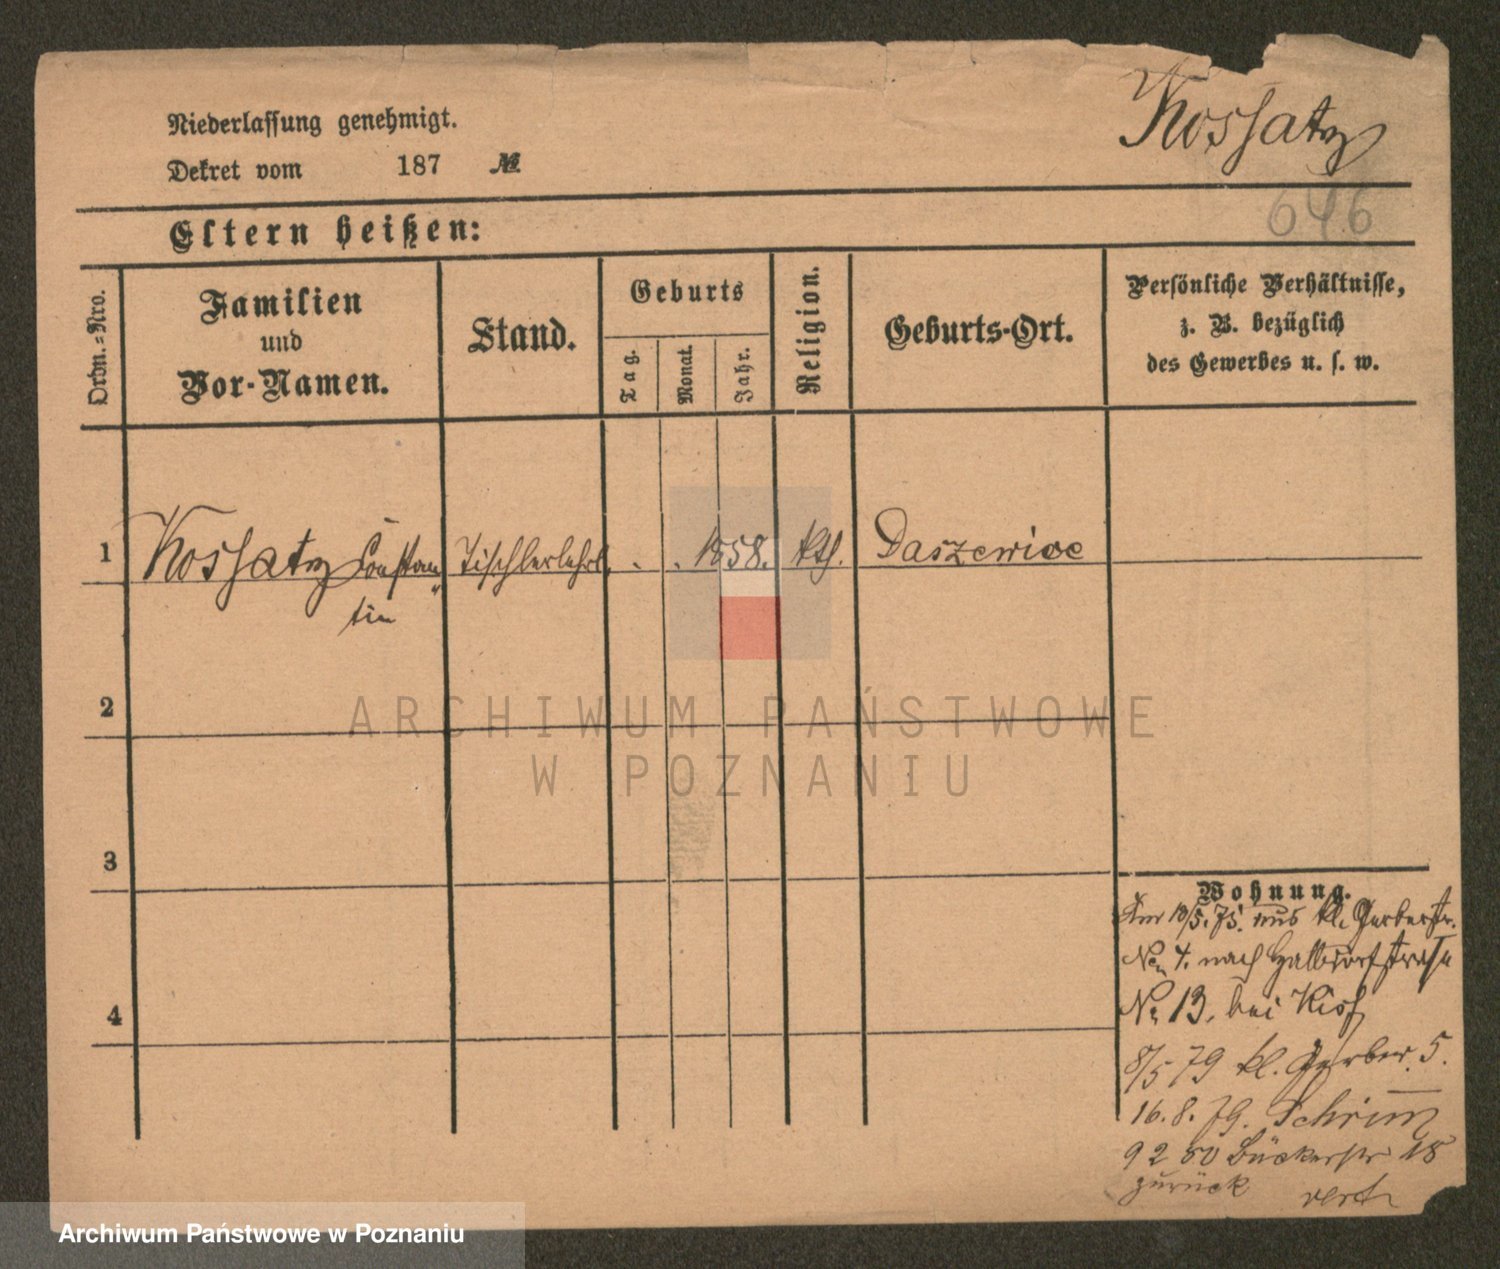 Kossatz
Niederlassung genehmigt.
Dekret vom 187 №
646
Eltern heißen:
Ordn.-Nro.
Familien
und
Vor-Namen.
Stand.
Geburts
Tag.
Monat.
Jahr.
Religion.
Geburts-Ort.
Persönliche Verhältnisse,
z. B. bezüglich
des Gewerbes u. s. w.
1 Kossatz Constan- Tischlerlehrl. . . 1858. kth. Daszewice
tin
2
ARCHIWUM PAŃSTWOWE
W POZNANIU
3
Wohnung.
Am 10/5.75. aus kl. Gerberstr.
No 4. nach Halbdorfstraße
4
No 13. bei
8/5 79 kl. Gerber. 5.
16.8.79. Schrimm
9 2 80 Bäckerstr 18
zurück
Archiwum Państwowe w Poznaniu